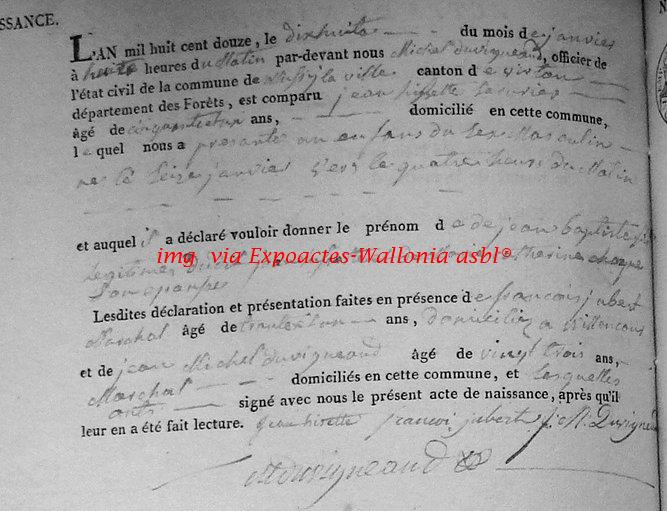 SSANCE.
LAN mil huit cent douze, le dix huite du mois de janvier
à heures du Matin par-devant nous Michel duvigneaud, officier de
l'état civil de la commune de Mussy la ville canton de virton
département des Forêts, est comparu jean
âgé de ans, domicilié en cette commune,
lequel nous a présanté un enfans du Sex Masculin
né le seize janvier vers le quatre heur du Matin
et auquel il a déclaré vouloir donner le prénom de de jean baptiste
img via Expoactes-Wallonia asbl©
Legitimes
Son epouse
Lesdites déclaration et présentation faites en présence de francois jubert
Marchal âgé de ans, domicilié a
et de jean Michel duvigneaud âgé de vingt trois ans,
Marchal domiciliés en cette commune, et lesquelles
onts signé avec nous le présent acte de naissance, après qu'il
leur en a été fait lecture. jubert J. M. Duvigneaud
Mduvigneaud
N